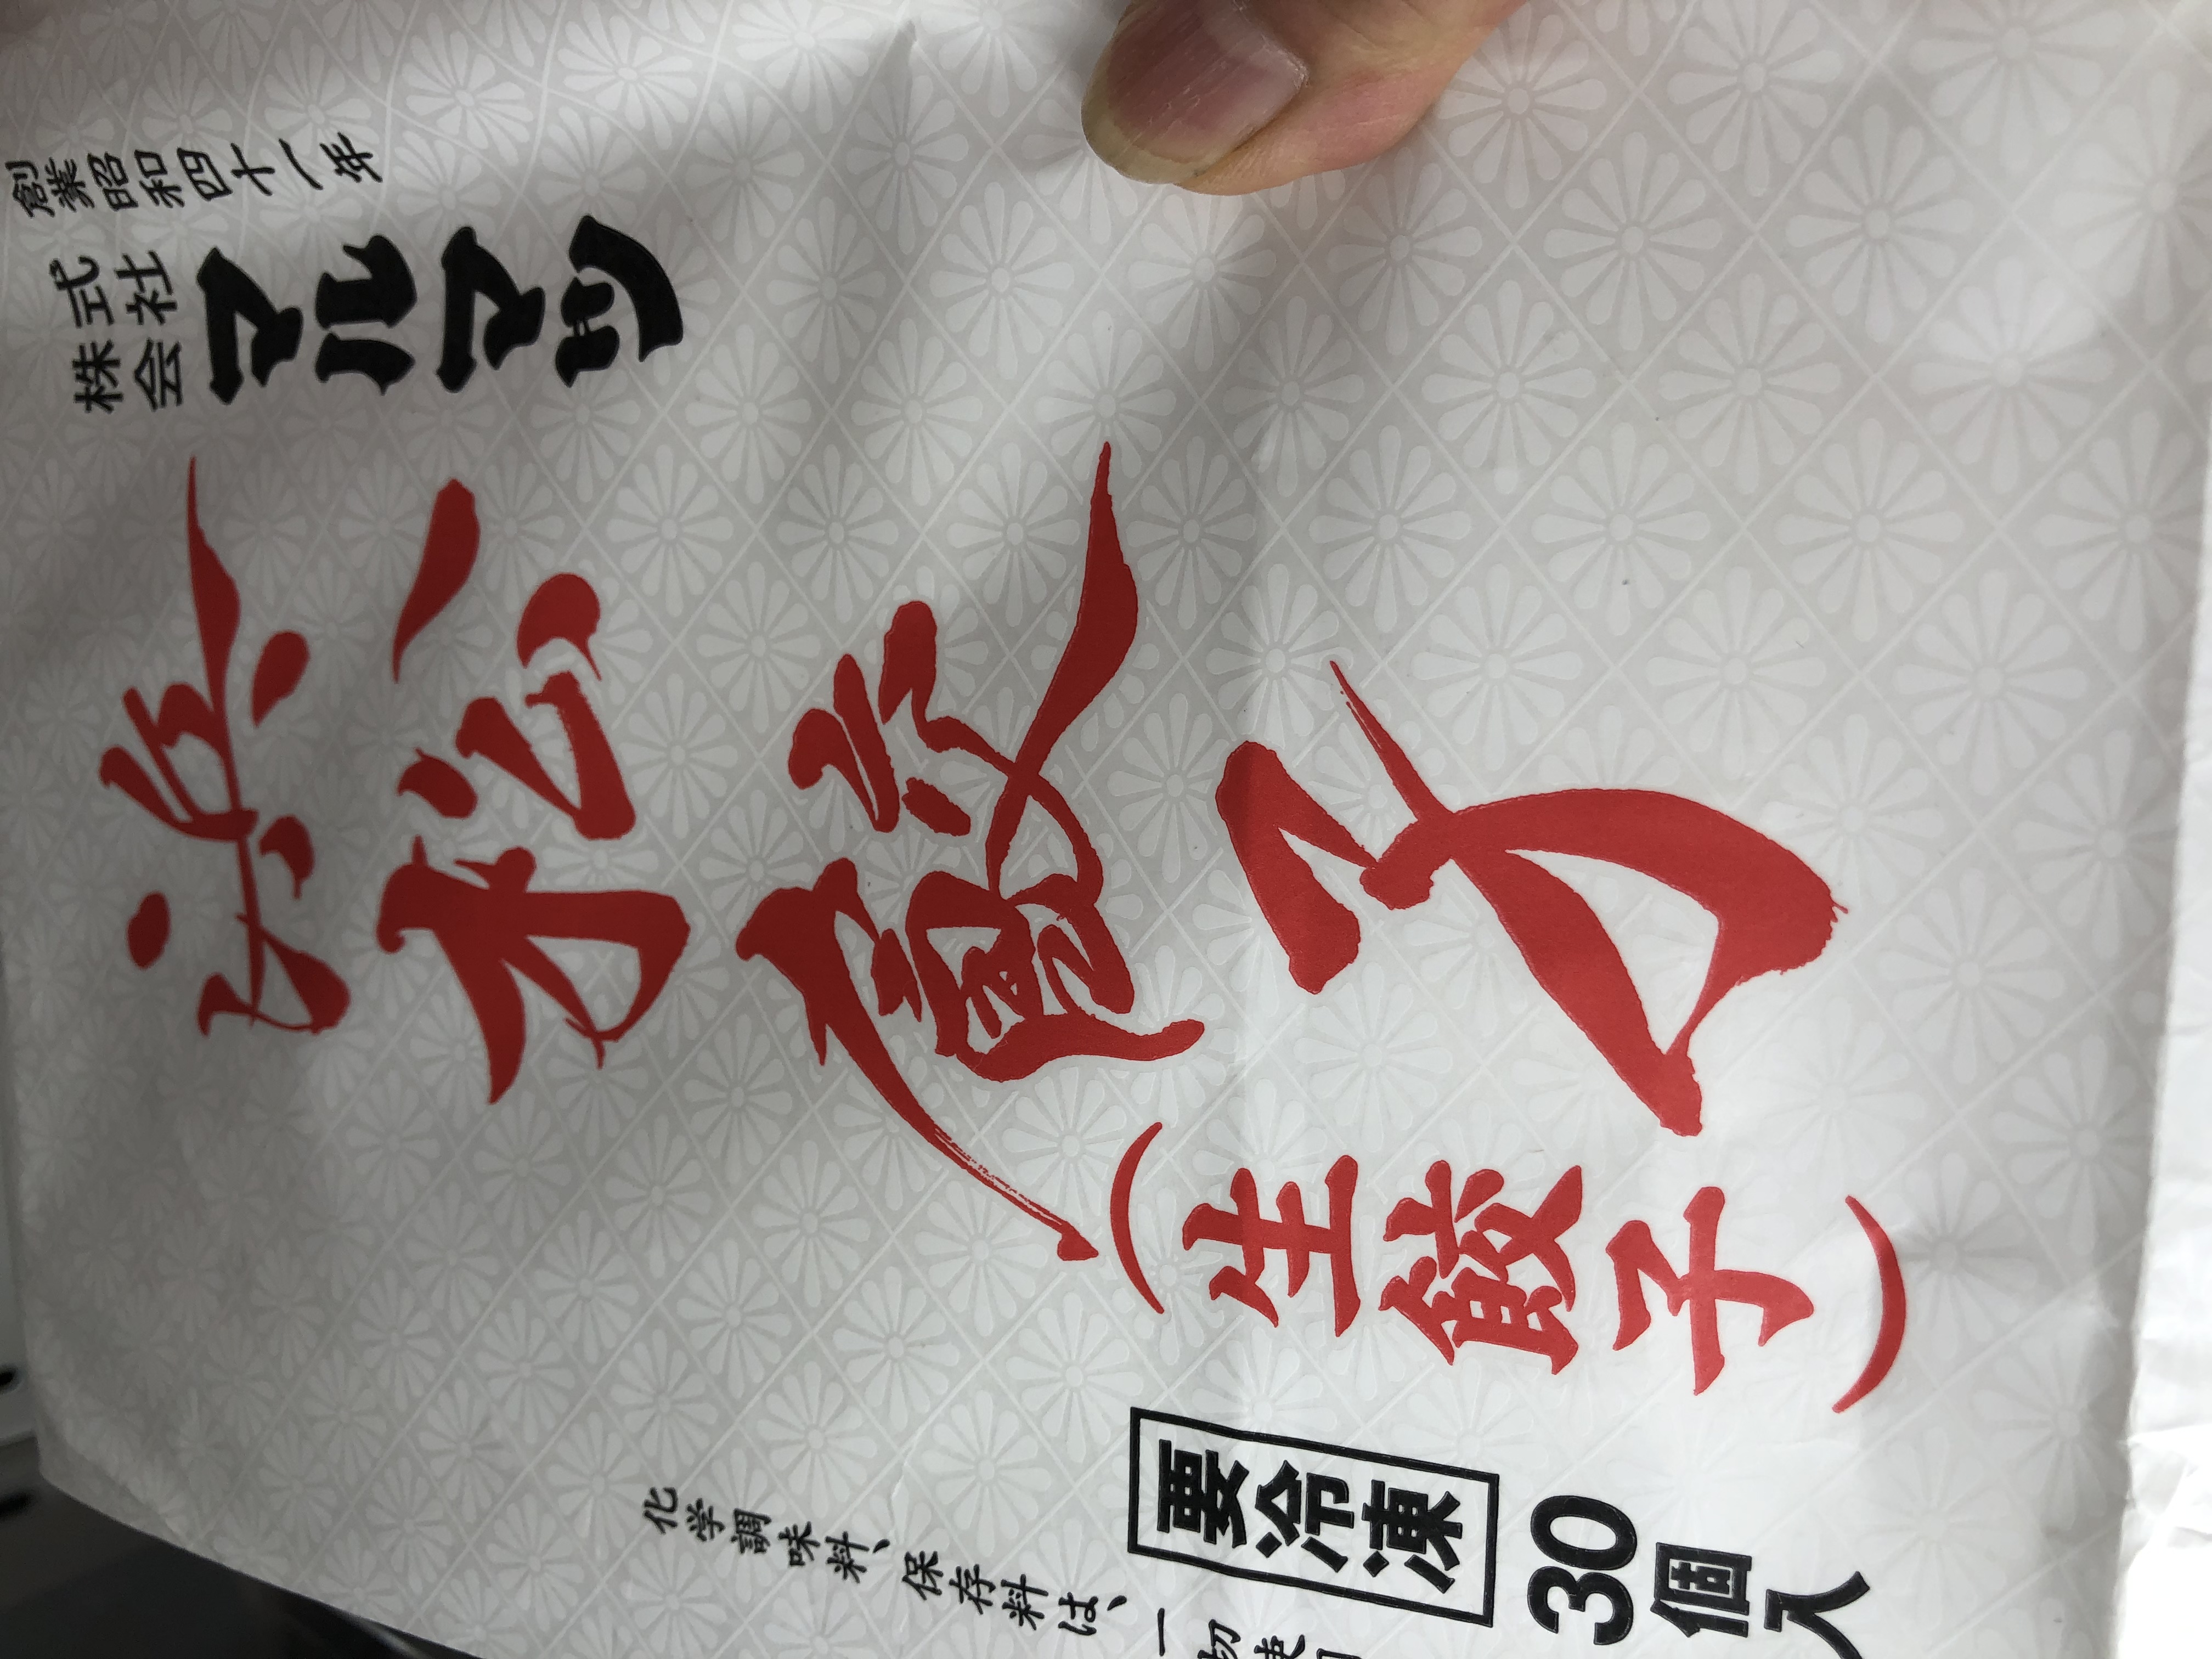 創業昭和四十一年
株式会社
マルマツ
浜松餃子
（生餃子）
要冷凍
30個入
化学調味料、保存料は、一切使